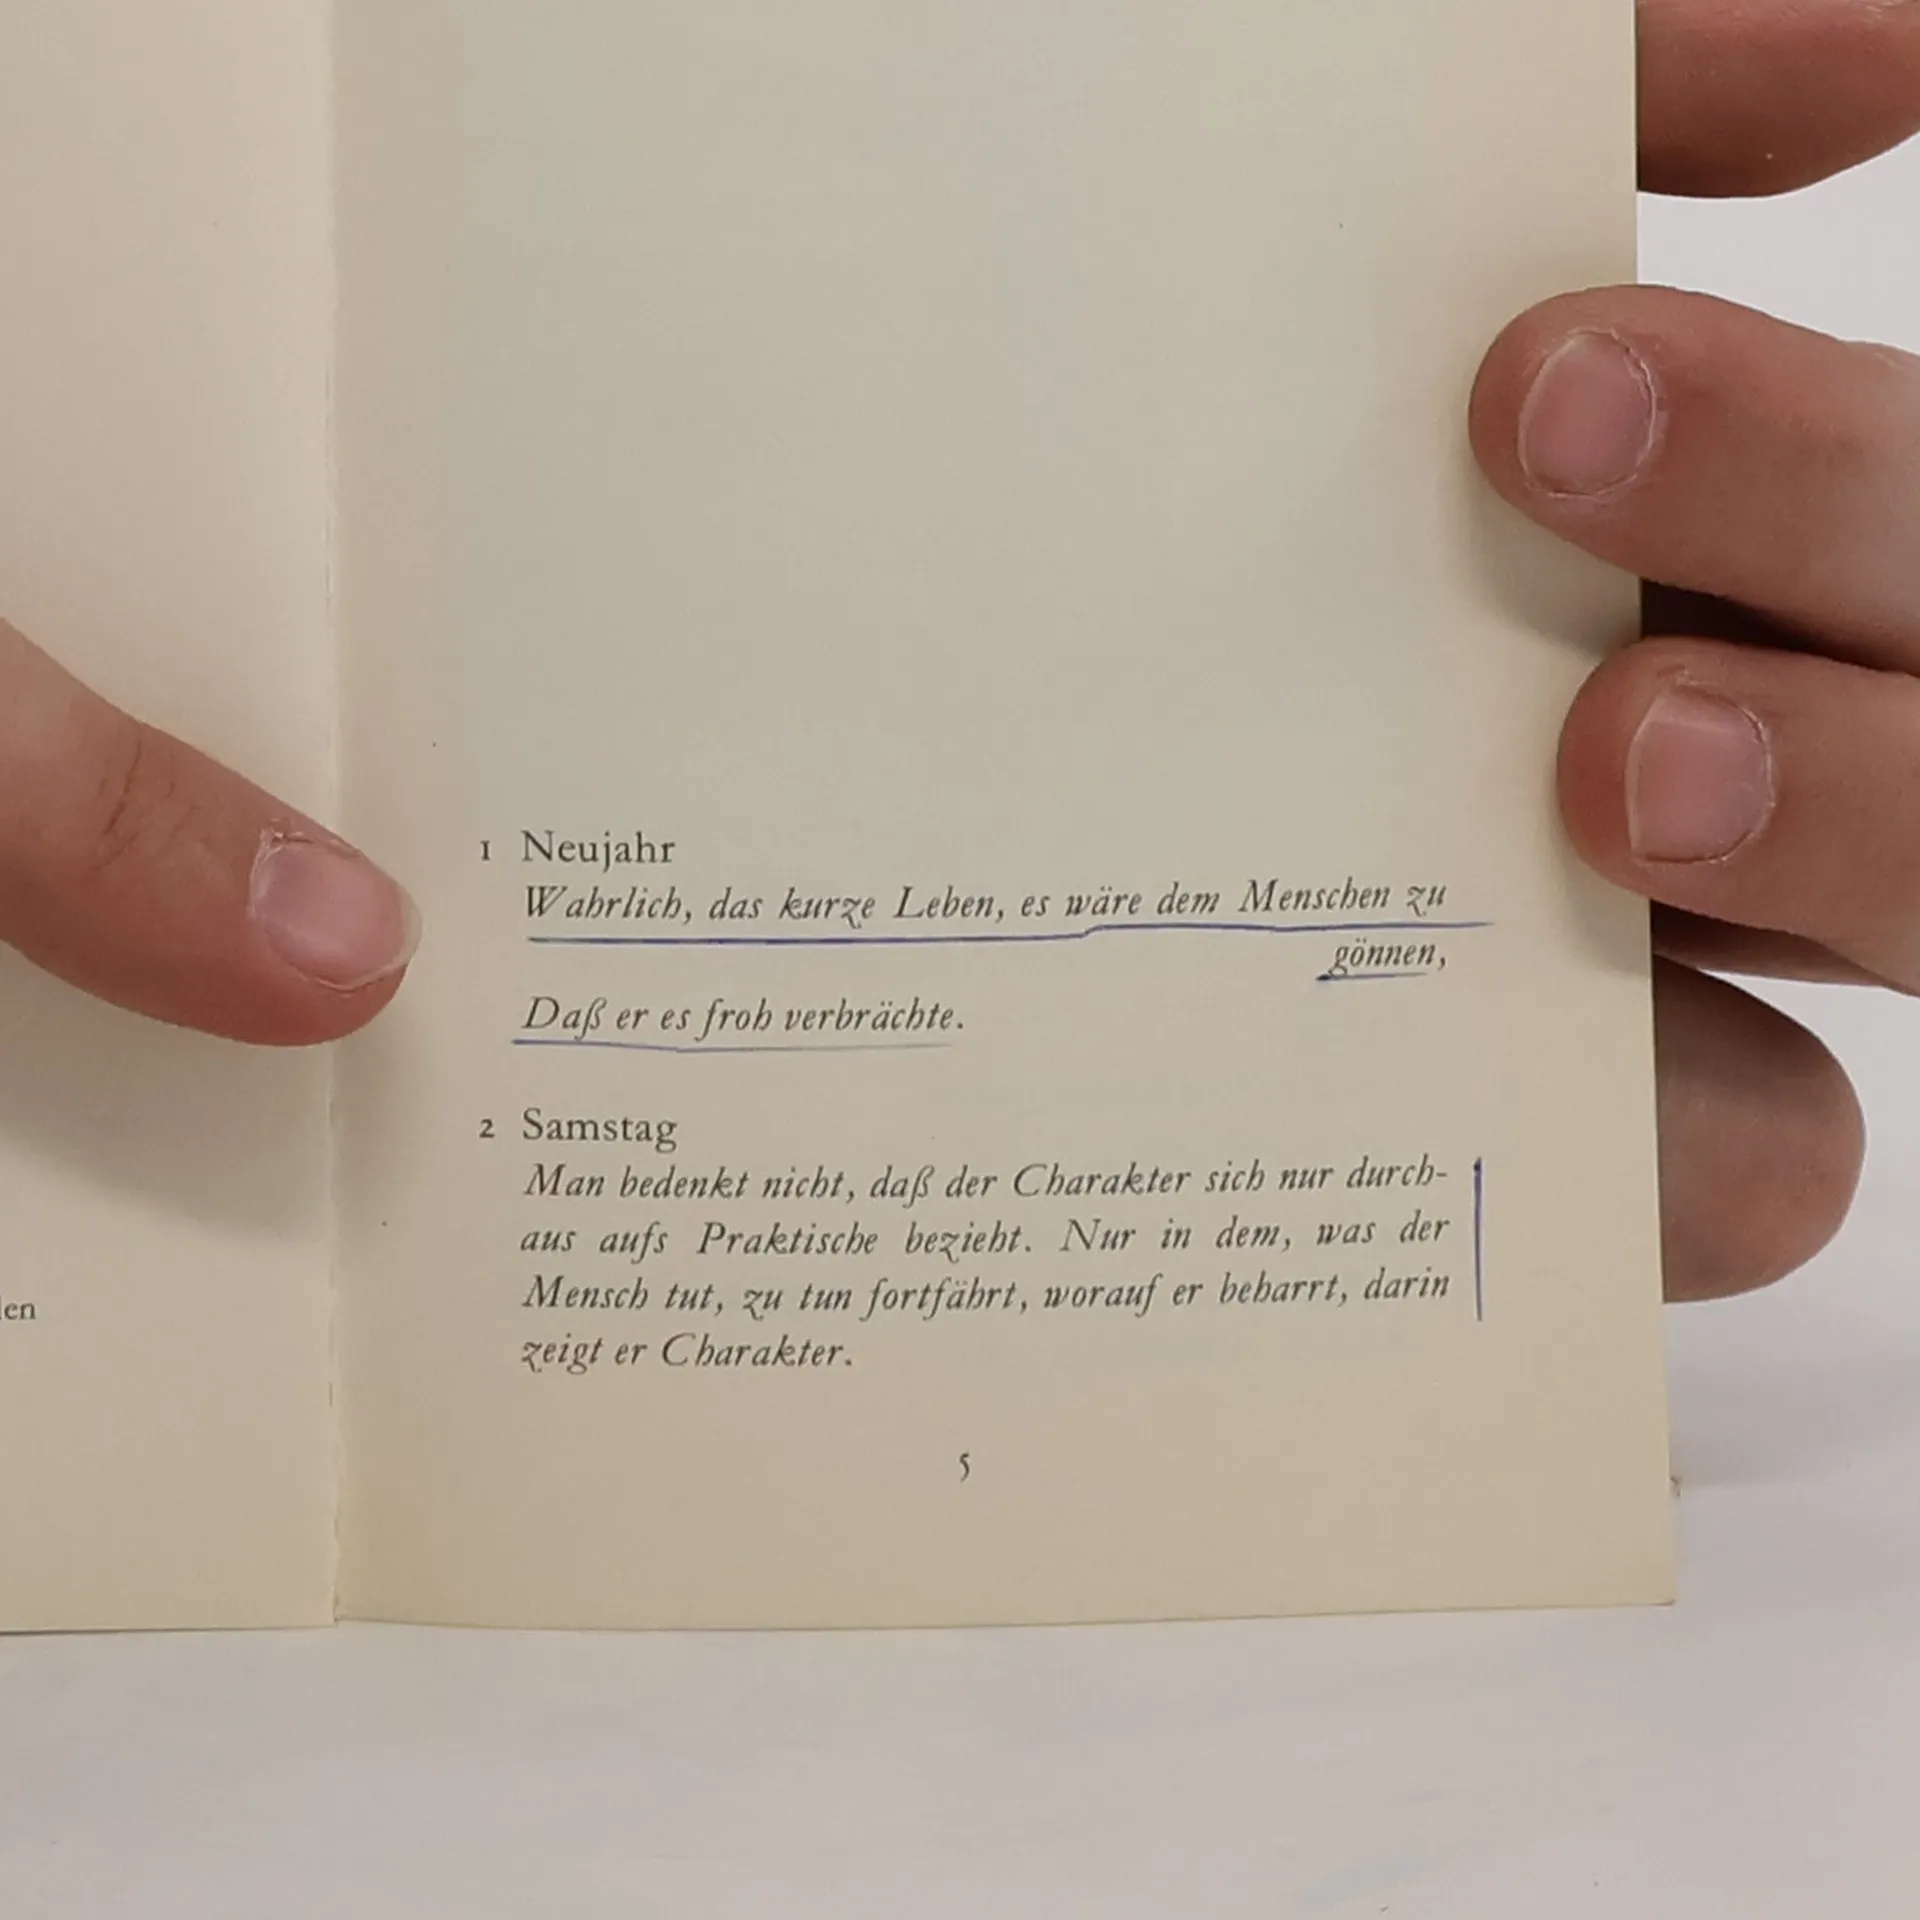 len
1 Neujahr
Wahrlich, das kurze Leben, es wäre dem Menschen zu
gönnen,
Daß er es froh verbrächte.
2 Samstag
Man bedenkt nicht, daß der Charakter sich nur durch-
aus aufs Praktische bezieht. Nur in dem, was der
Mensch tut, zu tun fortfährt, worauf er beharrt, darin
zeigt er Charakter.
5